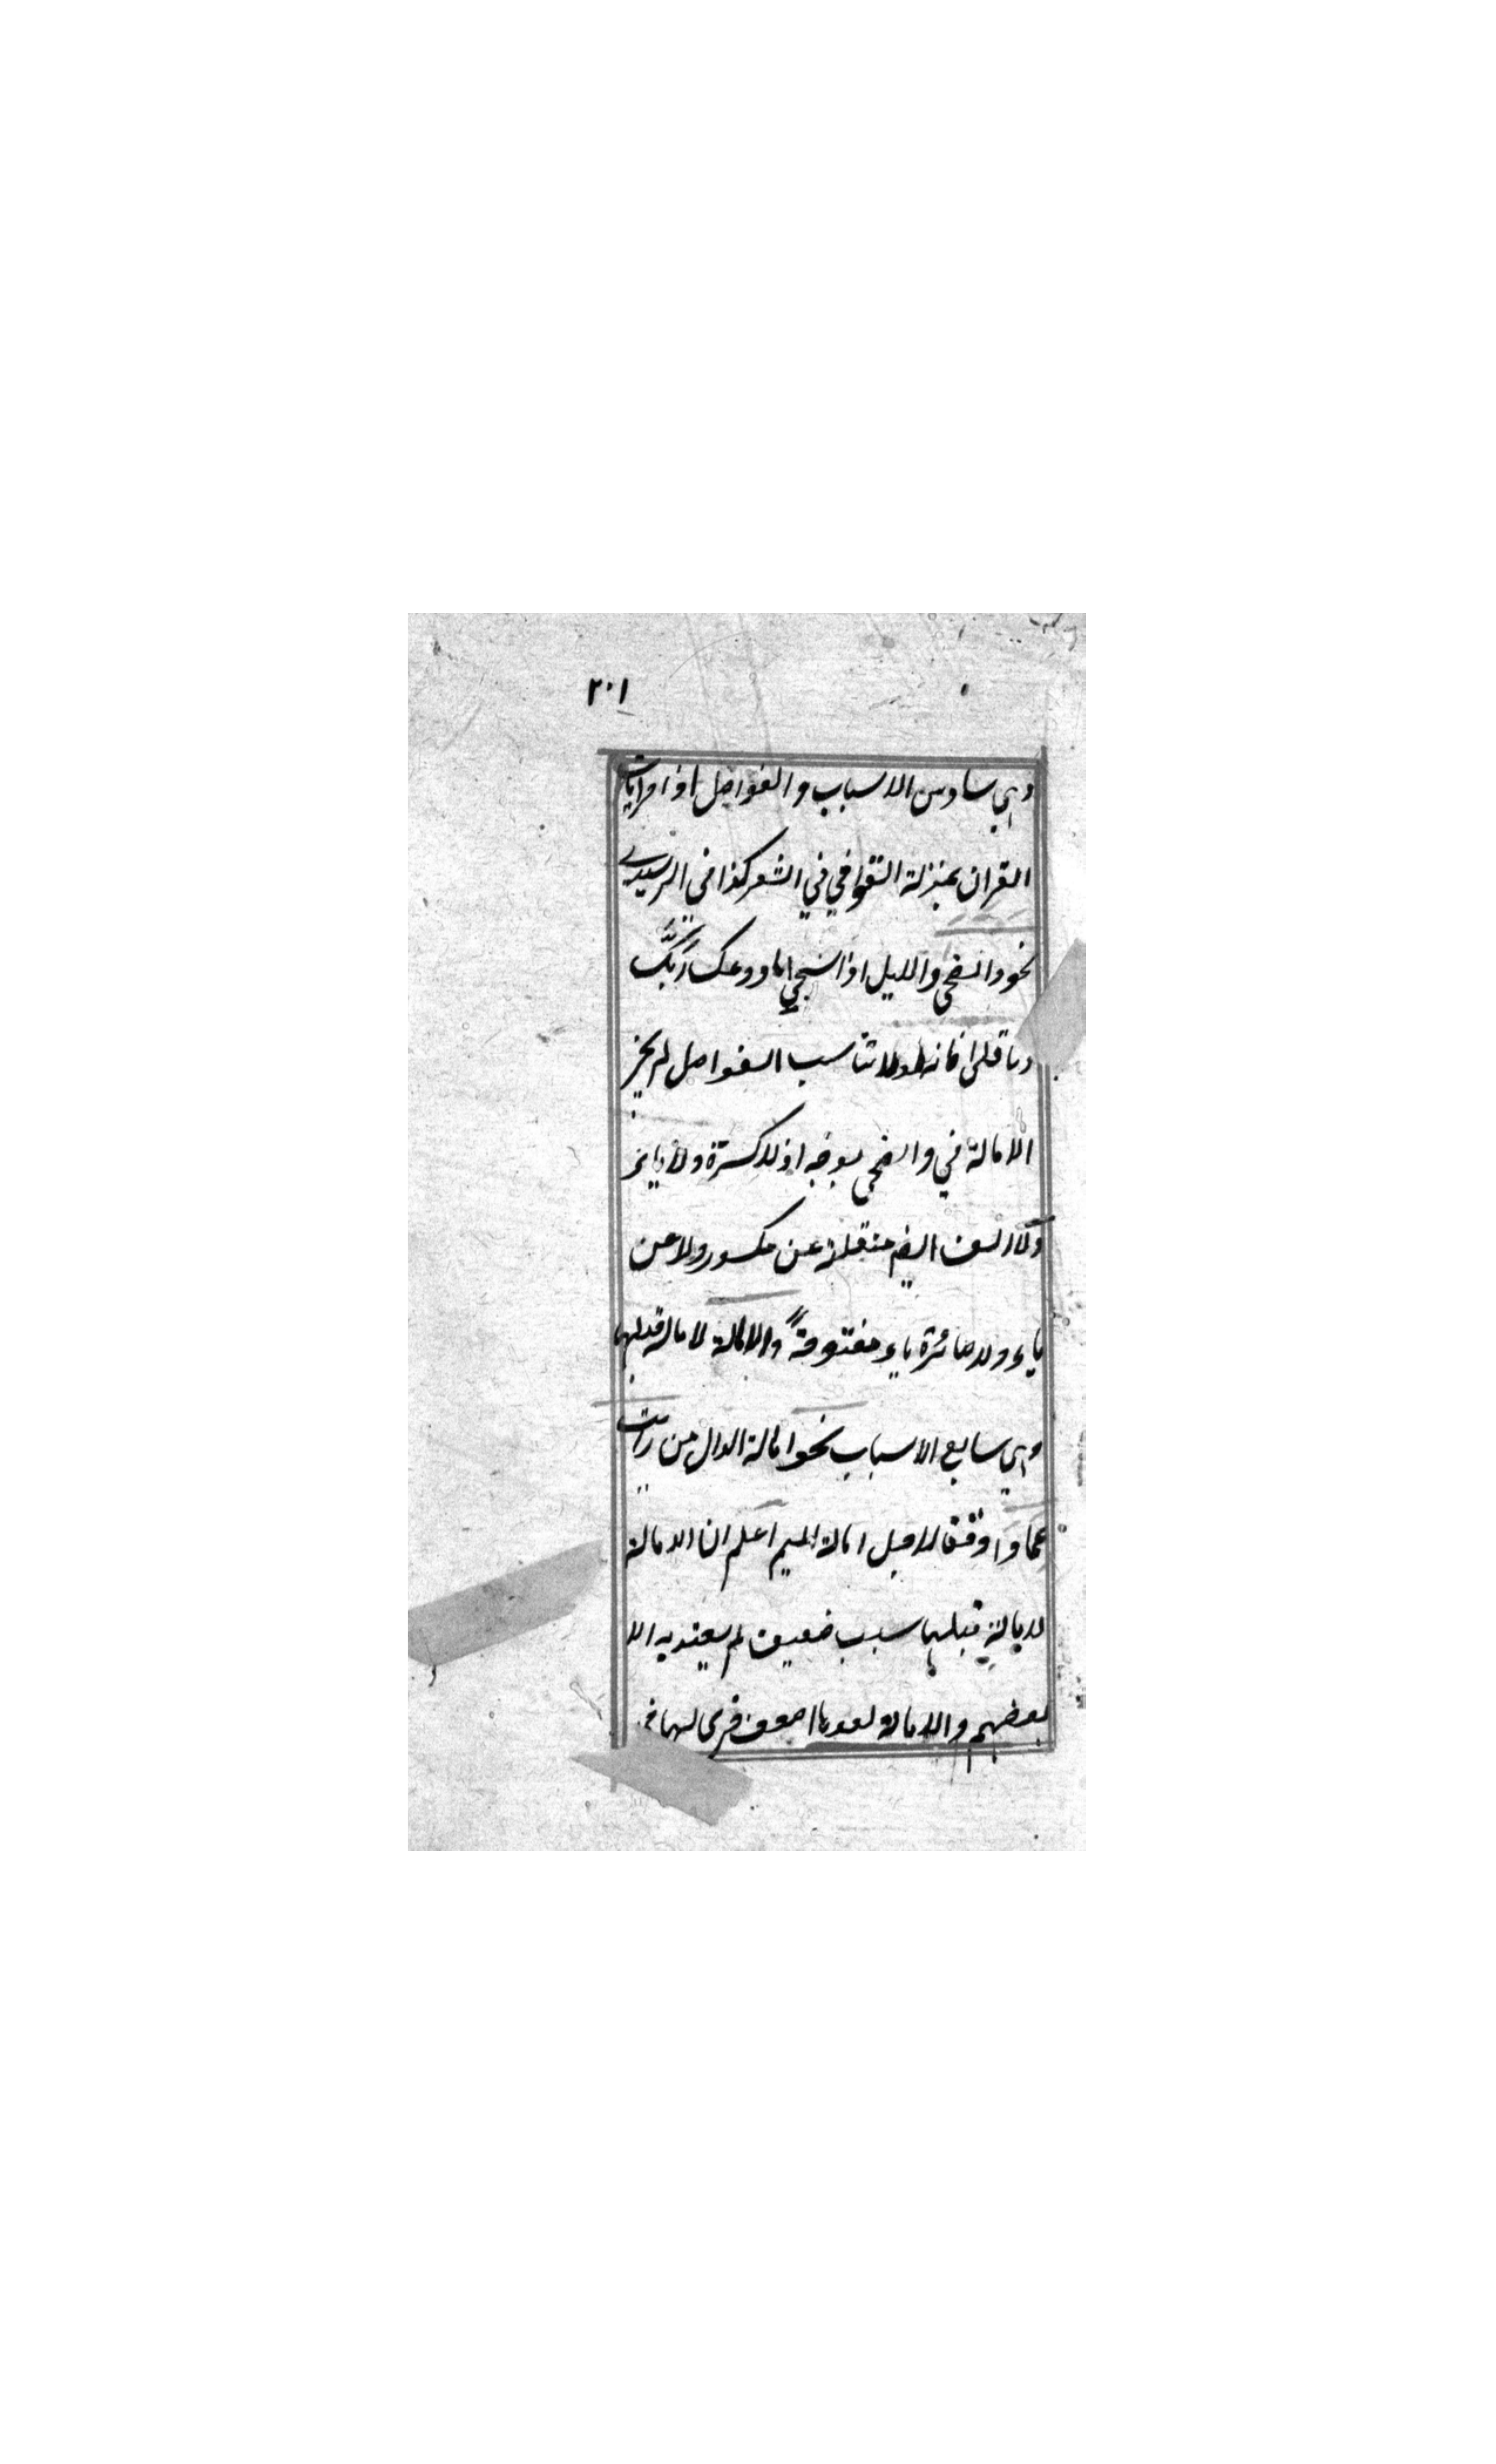 ٢٠١
وهي سادس الاسباب والفواصل اواخر ايات
القران بمنزلة القوافي في الشعر كذا في الرسيدي
نحو والضحي والليل اذا سجي ما ودعك ربك
وما قلي فانه لولا تناسب الفواصل لم يجز
الامالة في والضحي بوجه اذ لا كسرة ولا ياء
ولا الف الضحي منقلبة عن مكسور ولا عن
ياء ولا صائرة ياء مفتوحة والامالة لامالة قبلها
وهي سابع الاسباب نحو امالة الدال من رايت
عمادا وقفا لاجل امالة الميم اعلم ان الامالة
لامالة قبلها سبب ضعيف لم يعتد به الا
بعضهم والامالة لما بعدها اضعف قرئ بها في